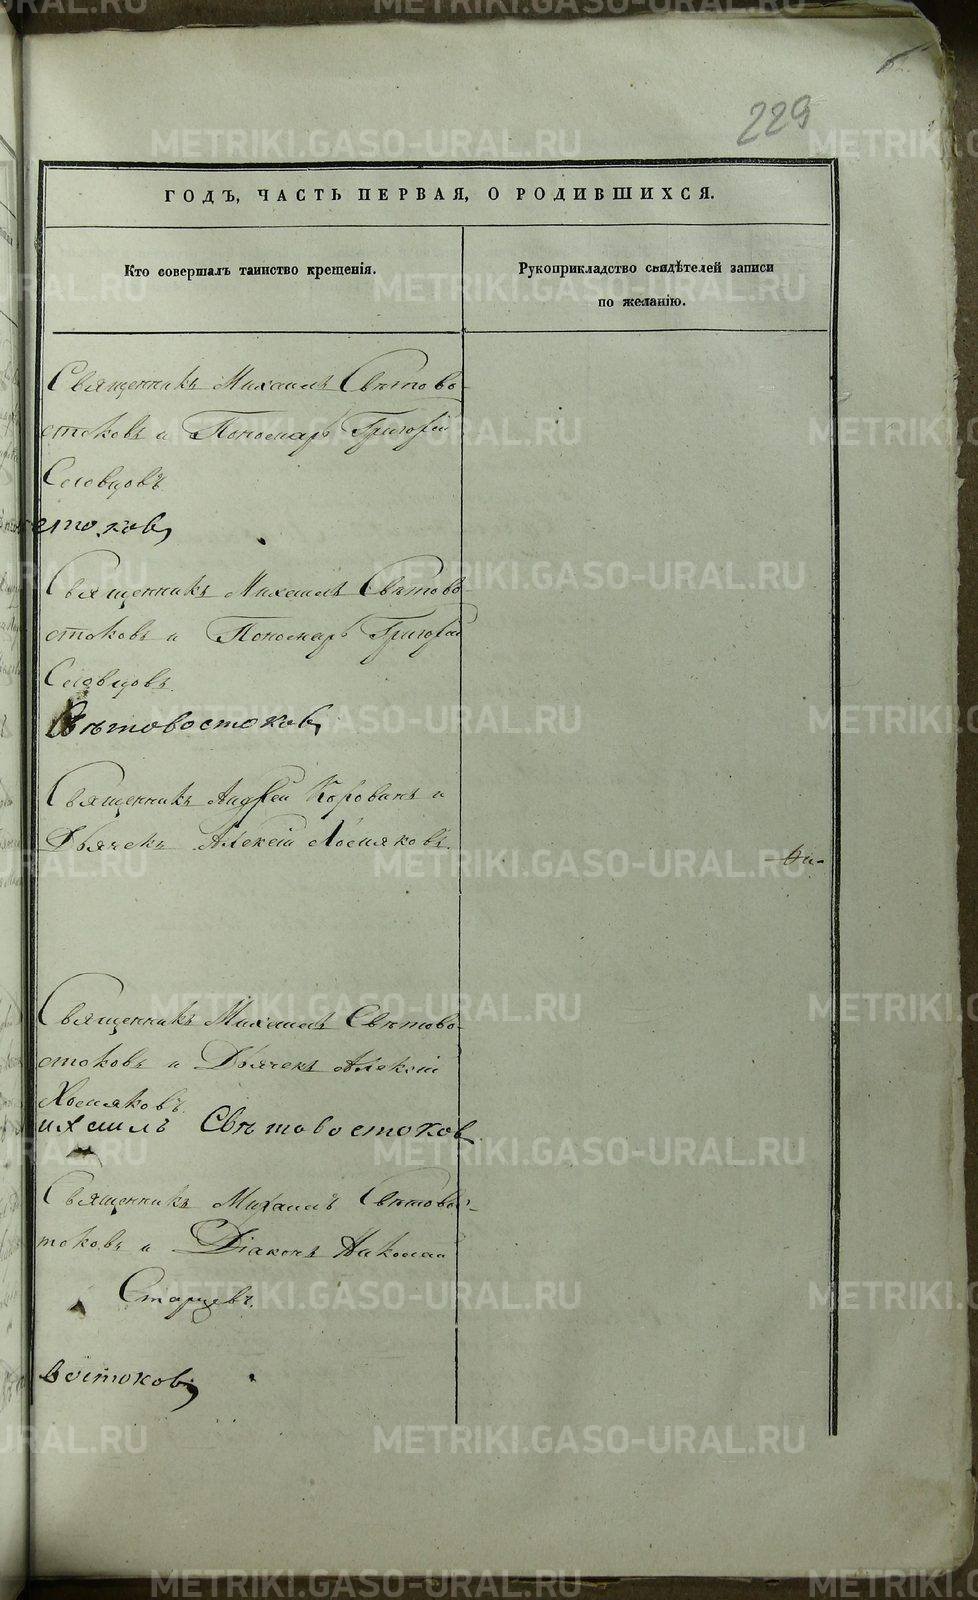 229
ГОДЪ, ЧАСТЬ ПЕРВАЯ, О РОДИВШИХСЯ.
Кто совершалъ таинство крещенія.
Рукоприкладство свидѣтелей записи
по желанію.
Священникъ Михаилъ Свѣтово-
стоковъ и Пономарь Григорій
Словцовъ.
стоковъ
Священникъ Михаилъ Свѣтово-
стоковъ и Пономарь Григорій
Словцовъ.
Свѣтовостоковъ
Священникъ Андрей Коровинъ и
Дьячекъ Алексій Хомяковъ.
Священникъ Михаилъ Свѣтово-
стоковъ и Дьячекъ Алексій
Хомяковъ.
ихаилъ Свѣтовостоковъ
Священникъ Михаилъ Свѣтовос-
токовъ и Діаконъ Николай
Старцевъ.
востоковъ
METRIKI.GASO-URAL.RU